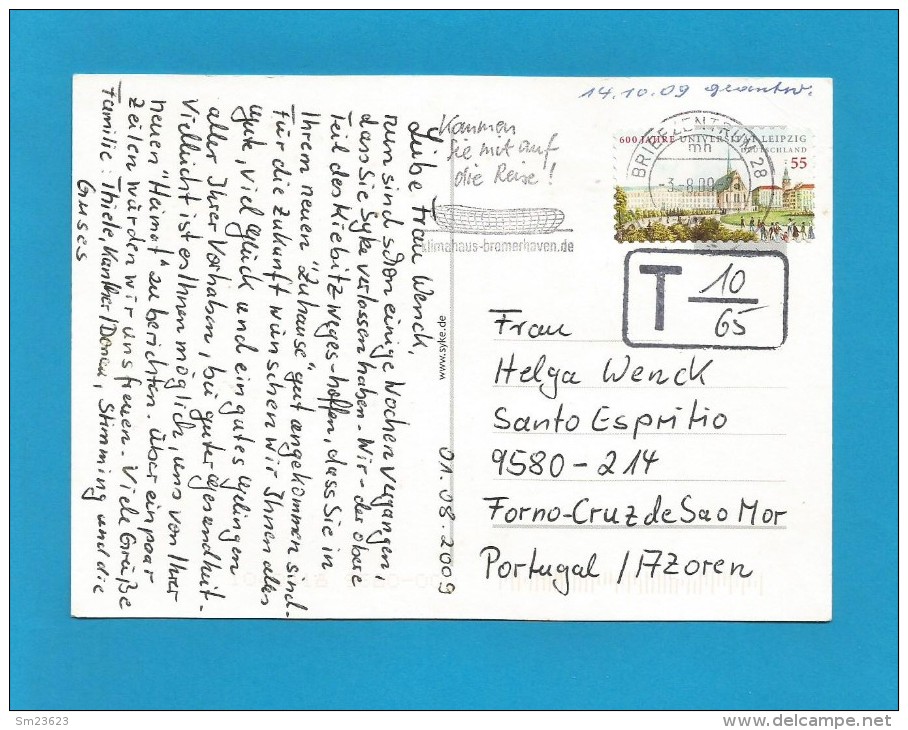 14.10.09 geantw.
Kommen
Sie mit auf
die Reise!
klimahaus-bremerhaven.de
BRIEFZENTRUM 28
mn
-3.-8.09
600 JAHRE UNIVERSITÄT LEIPZIG
DEUTSCHLAND
55
T 10
65
www.syke.de
01.08.2009
Liebe Frau Wenck,
nun sind schon einige Wochen vergangen
dass Sie Syke verlassen haben. Wir - der obere
Teil des Kiebitzweges - hoffen, dass Sie in
Ihrem neuen "Zuhause" gut angekommen sind.
Für die Zukunft wünschen wir Ihnen alles
gute, viel Glück und ein gutes Gelingen
aller Ihrer Vorhaben, bei guter Gesundheit.
Vielleicht ist es Ihnen möglich, uns von Ihrer
neuen "Heimat" zu berichten. Über ein paar
Zeilen würden wir uns freuen. Viele Grüße
Familie: Thiele, Stimming und die
Frau
Helga Wenck
Santo Espritio
9580-214
Forno-Cruz de Sao Mor
Portugal / Azoren
Sm23623